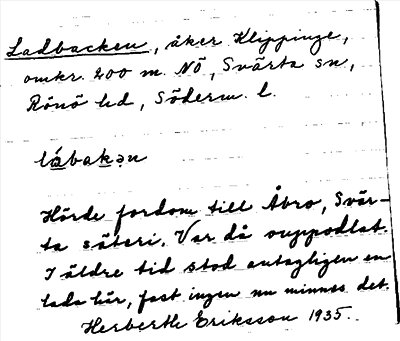 Ladbacken, åker Klippinge,
omkr. 200 m. NÖ, Svärta sn,
Rönö hd, Söderm. l.
lábakən
Hörde fordom till Åbro, Svär-
ta säteri. Var då ouppodlat.
I äldre tid stod antagligen en
lada här, fast ingen nu minnes det.
Herberth Eriksson 1935.